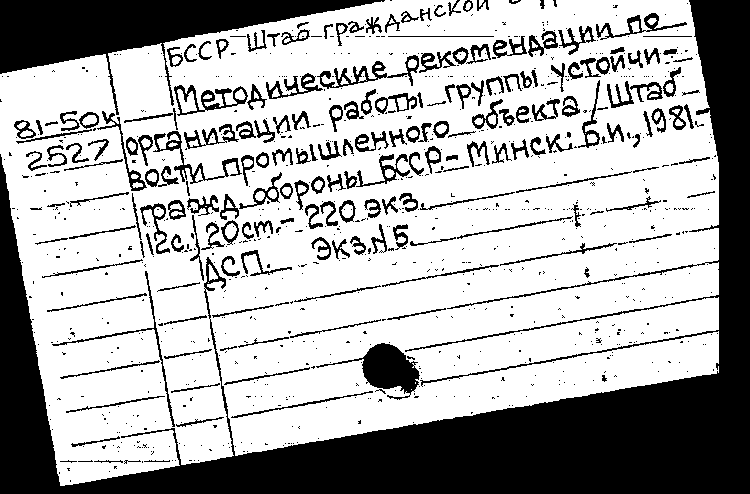 БССР. Штаб гражданской
Методические рекомендации по
81-50к
организации работы группы устойчи-
2527
вости промышленного объекта / Штаб
гражд. обороны БССР.- Минск: Б.и., 1981.-
12с.; 20ст.- 220 экз.
ДСП. Экз.N5.